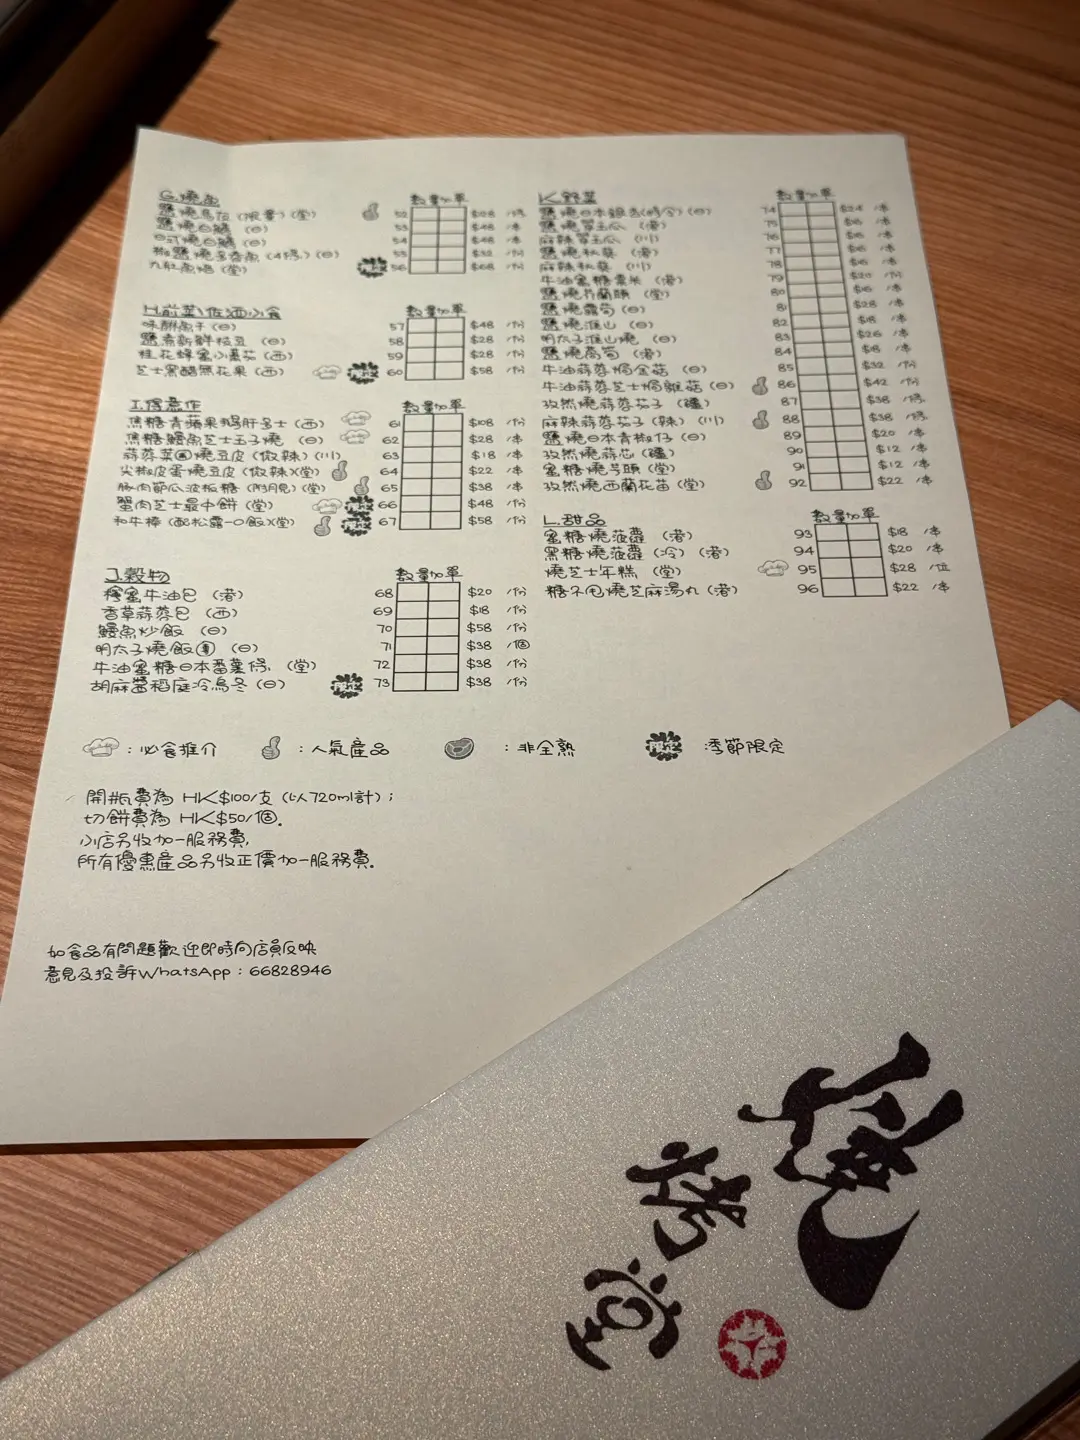 G.燒魚
數量加單
鹽燒烏
(限量) (堂) 52
鹽燒白鱔 (日) 53 $48 /串
日式燒白鱔 (日) 54 $48 /串
椒鹽燒多春魚 (4條) (日) 55 $32 /份
限定 56 $68 /份
H.前菜\佐酒小食
數量加單
味醂魚干 (日) 57 $48 /份
鹽煮新鮮枝豆 (日) 58 $28 /份
桂花蜂蜜小番茄 (西) 59 $28 /份
芝士黑醋無花果 (西) 限定 60 $58 /份
I.得意作
數量加單
焦糖青蘋果鵝肝多士 (西) 61 $108 /份
焦糖鰻魚芝士玉子燒 (日) 62 $28 /串
蒜蓉菜圃燒豆皮 (微辣) (川) 63 $18 /串
尖椒皮蛋燒豆皮 (微辣)(堂) 64 $22 /串
豚肉節瓜波板糖 (附月見) (堂) 65 $38 /串
蟹肉芝士最中餅 (堂) 限定 66 $48 /份
和牛棒 (配松露一口飯)(堂) 限定 67 $58 /份
J.穀物
數量加單
蜜牛油包 (港) 68 $20 /份
香草蒜蓉包 (西) 69 $18 /份
鰻魚炒飯 (日) 70 $58 /份
明太子燒飯團 (日) 71 $38 /個
牛油蜜糖日本番薯條 (堂) 72 $38 /份
胡麻醬稻庭冷烏冬 (日) 限定 73 $38 /份
K.野菜
數量加單
鹽燒日本銀杏(時令) (日) 74 $24 /串
鹽燒翠玉瓜 (港) 75 /串
麻辣翠玉瓜 (川) 76 /串
鹽燒秋葵 (港) 77 /串
麻辣秋葵 (川) 78 /串
牛油蜜糖粟米 (港) 79 $20 /份
鹽燒芥蘭頭 (堂) 80 /串
鹽燒露筍 (日) 81 $28 /串
鹽燒淮山 (日) 82 /串
明太子淮山燒 (日) 83 $26 /串
鹽燒萵筍 (港) 84 /串
牛油蒜蓉焗金菇 (日) 85 $32 /份
牛油蒜蓉芝士焗雜菇 (日) 86 $42 /份
孜然燒蒜蓉茄子 (疆) 87 $38 /條
麻辣蒜蓉茄子 (辣) (川) 88 $38 /條
鹽燒日本青椒仔 (日) 89 $20 /串
孜然燒蒜芯 (疆) 90 $12 /串
蜜糖燒芋頭 (堂) 91 $12 /串
孜然燒西蘭花苗 (堂) 92 $22 /串
L.甜品
數量加單
蜜糖燒菠蘿 (港) 93 $18 /串
黑糖燒菠蘿 (冷) (港) 94 $20 /串
燒芝士年糕 (堂) 95 $28 /位
糖不甩燒芝麻湯丸 (港) 96 $22 /串
:必食推介 :人氣產品 :非全熟 限定 :季節限定
開瓶費為 HK$100/支 (以720ml計) ;
切餅費為 HK$50/個。
小店另收加一服務費,
所有優惠產品另收正價加一服務費。
如食品有問題歡迎即時向店員反映
意見及投訴WhatsApp : 66828946
燒
烤
堂